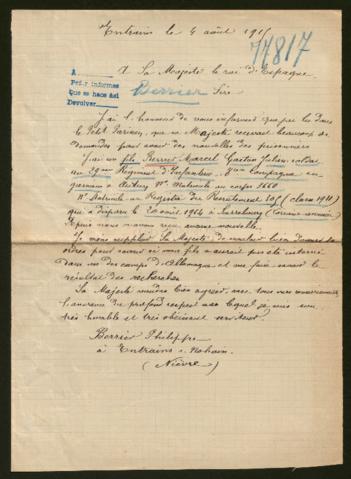 Entrains le 4 août 1915
77817
A Sa Majesté le roi d'Espagne
A
Pedir informes
Que se hace así
Devolver
Berrier
Sire
J'ai l'honneur de vous informer que j'ai lu dans
le Petit Parisien, que sa Majesté recevait beaucoup de
demandes pour avoir des nouvelles des prisonniers
J'ai un fils Berrier Marcel Gaston Julien soldat
au Régiment d'Infanterie Compagnie en
garnison à No Matricule au corps 5660
No Matricule au Registre du Recrutement (classe 1911)
qui a disparu le 20 août 1914 à Sarrebourg (Lorraine annexée)
Depuis nous n'avons reçu aucune nouvelle.
Je vous supplie Sa Majesté de vouloir bien donner des
ordres pour savoir si mon fils n'aurait pas été interné
dans un des camps d'Allemagne et me faire savoir le
résultat des recherches
Sa Majesté voudra bien agréer, avec tous mes remerciements
l'assurance du profond respect avec lequel je suis son
très humble et très obéissant serviteur.
Berrier Philippe
à Entrains s. Nohain
(Nièvre)